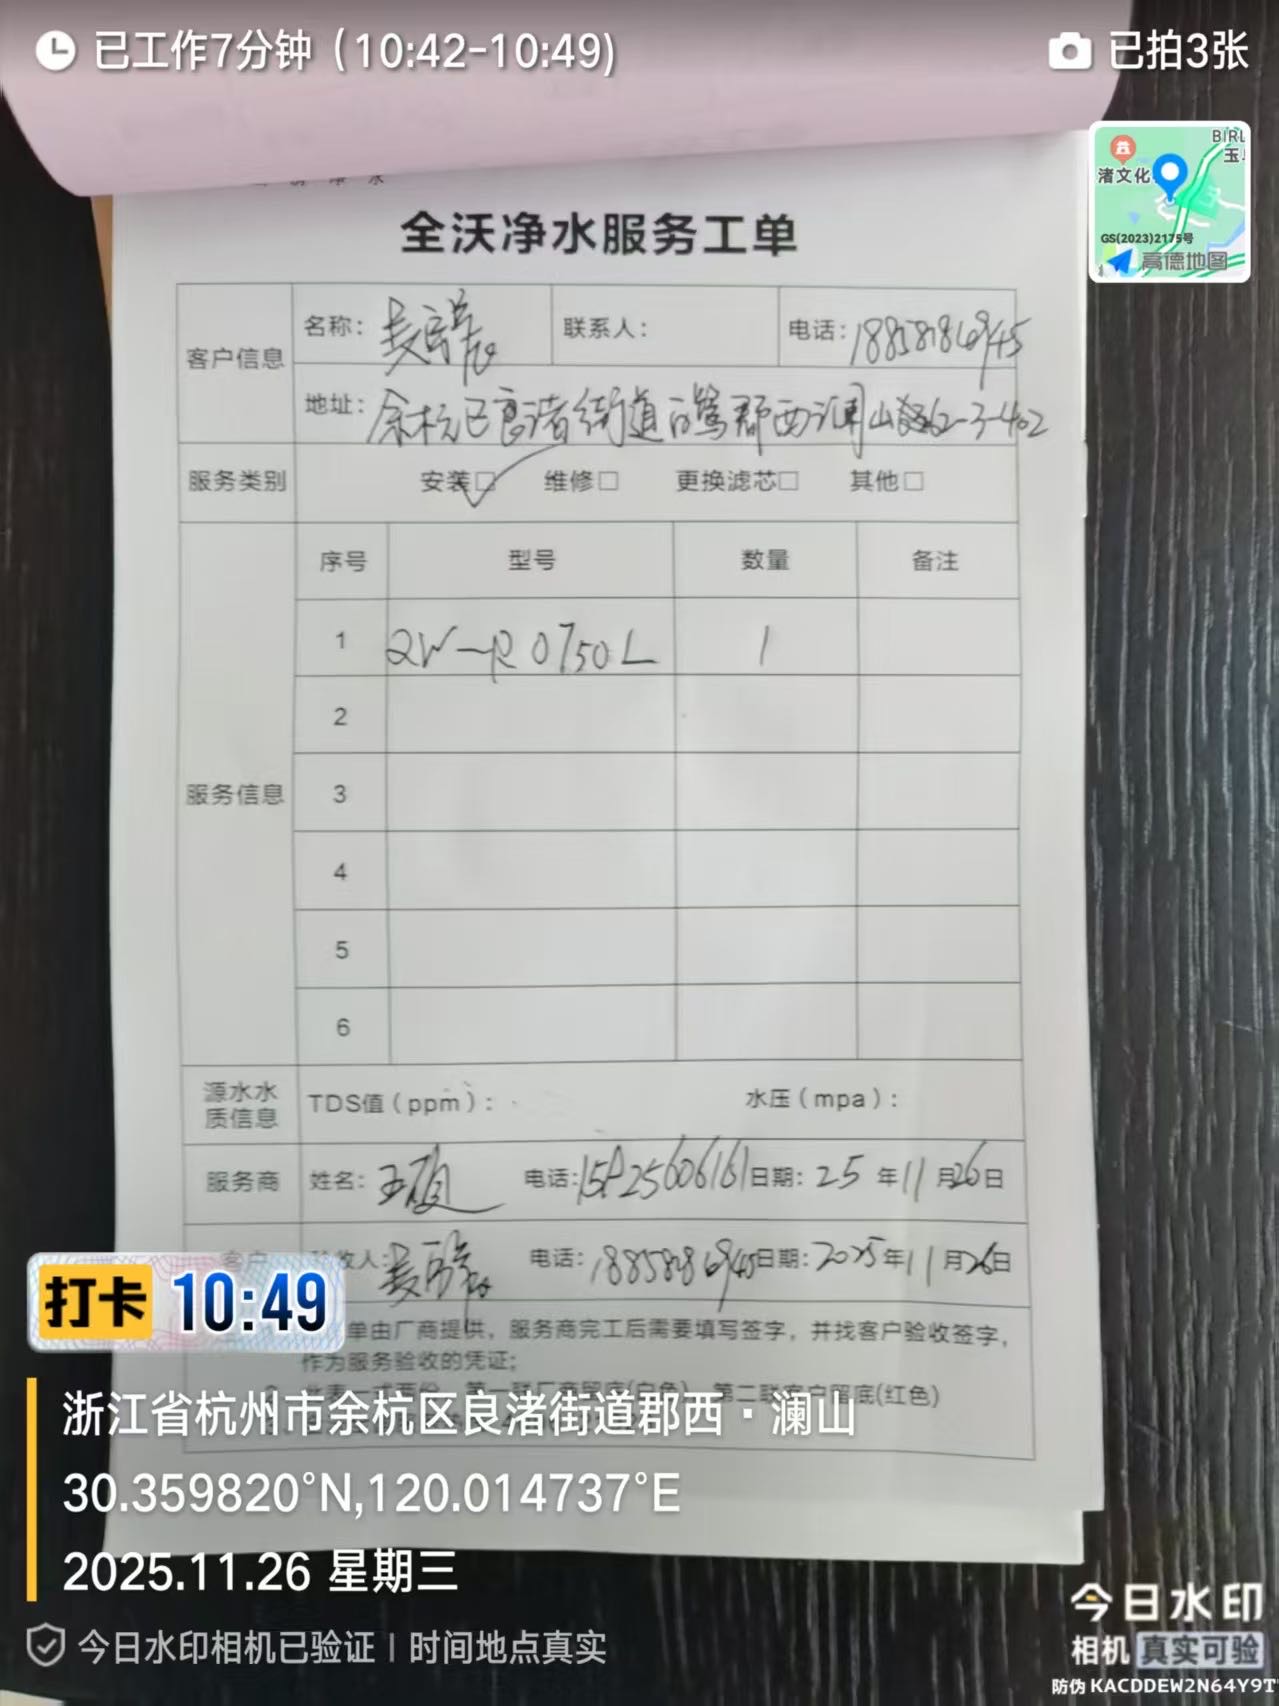 已工作7分钟（10:42-10:49)
已拍3张
BIRL
玉
渚文化
GS(2023)2175号
高德地图
全沃净水服务工单
客户信息
名称：
联系人：
电话：18858186945
地址：余杭区良渚街道白鹭郡西澜山 62-3-402
服务类别
安装☑ 维修□ 更换滤芯□ 其他□
服务信息
序号 型号 数量 备注
1 QW-RO750L 1
2
3
4
5
6
源水水质信息
TDS值（ppm）： 水压（mpa）：
服务商 姓名： 电话： 日期：25年11月26日
客户 验收人： 电话：18858186945 日期：2025年11月26日
单由厂商提供，服务商完工后需要填写签字，并找客户验收签字，
作为服务验收的凭证；
第二联客户留底(红色)
打卡 10:49
浙江省杭州市余杭区良渚街道郡西·澜山
30.359820°N,120.014737°E
2025.11.26 星期三
今日水印相机已验证 | 时间地点真实
今日水印
相机 真实可验
防伪 KACDDEW2N64Y9T